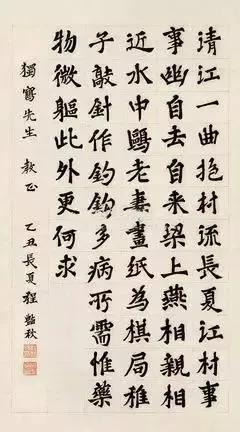 清江一曲抱村流長夏江村事
事幽自去自来梁上燕相親相
近水中鷗老妻畫紙為棋局稚
子敲針作釣鉤多病所需惟藥
物微軀此外更何求
獨先生 教正 乙丑長夏程豔秋